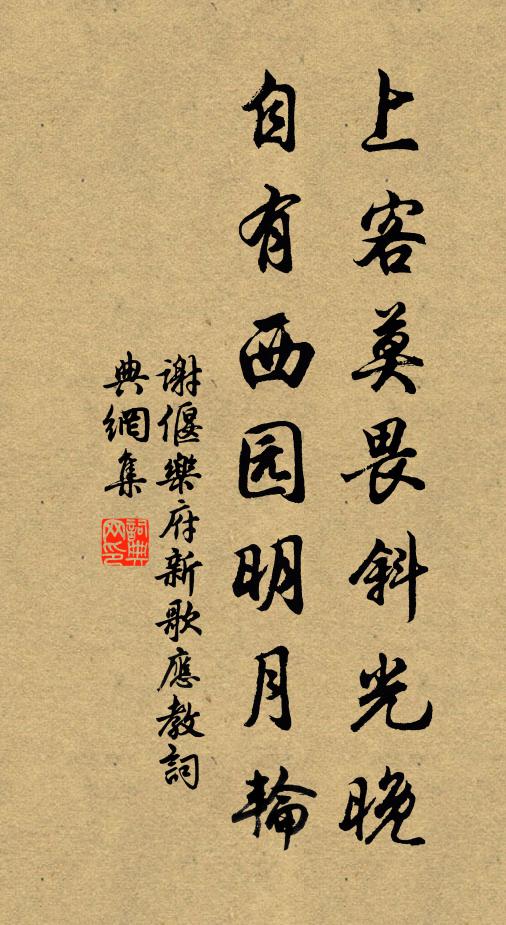 上客莫畏斜光晚
自有西园明月輪
谢偃樂府新歌應教詞
典網集
詞典网印